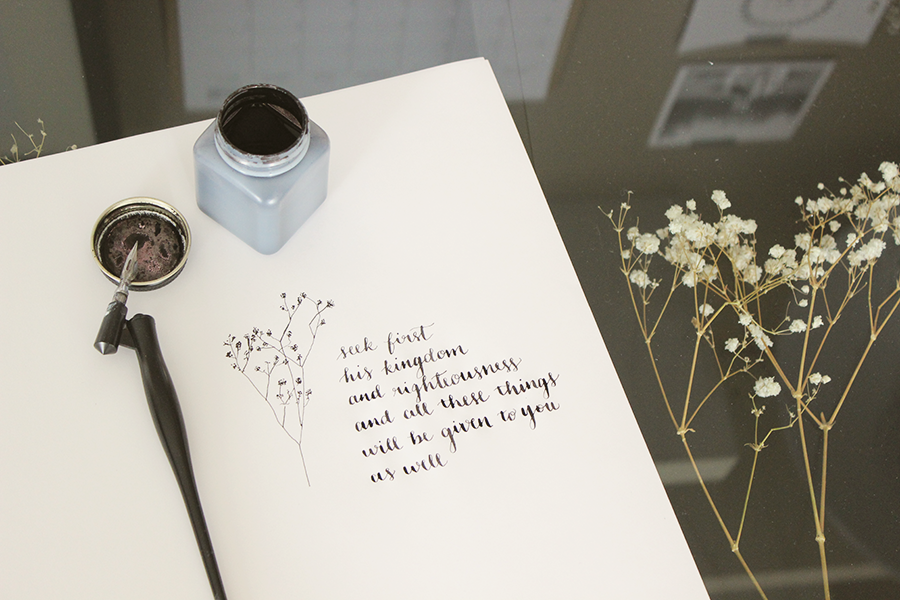 seek first
his kingdom
and righteousness
and all these things
will be given to you
as well